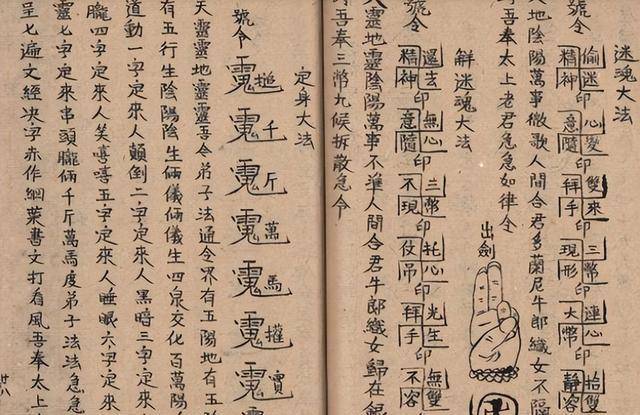 迷魂大法
號令 偷迷精神 印 心變意隨 印 雙來拜手 印 三幣現形 印 連心大幣 印 抬雙靜容
地陰陽萬事微歌人間合君多蘭尼牛郎織女不隔
吾奉太上老君急急如律令
出劍
解迷魂大法
號令 還去精神 印 無心意隨 印 三幣不現 印 托心仗吊 印 光生拜手 印 無雙不容
天靈地靈陰陽萬事不準人間合君牛郎織女歸在
時吾奉三幣九候拆散急令
定身大法
號令 搥 千 斤 萬 馬 權 寶
天靈靈地靈靈吾令弟子法通令界有五陽地有五
有五行生陰陽陰生倆儀倆儀生四泉交化百萬陽
道動一字定來人顛倒二字定來人黑暗三字定來
朧四字定來人笑嘻嘻五字定來人睡眠六字定來
靈七字定來串頭朧倆千斤萬馬度弟子法法急急
呈七遍文經決字赤作網葉書文打看風吾奉太上
廿八